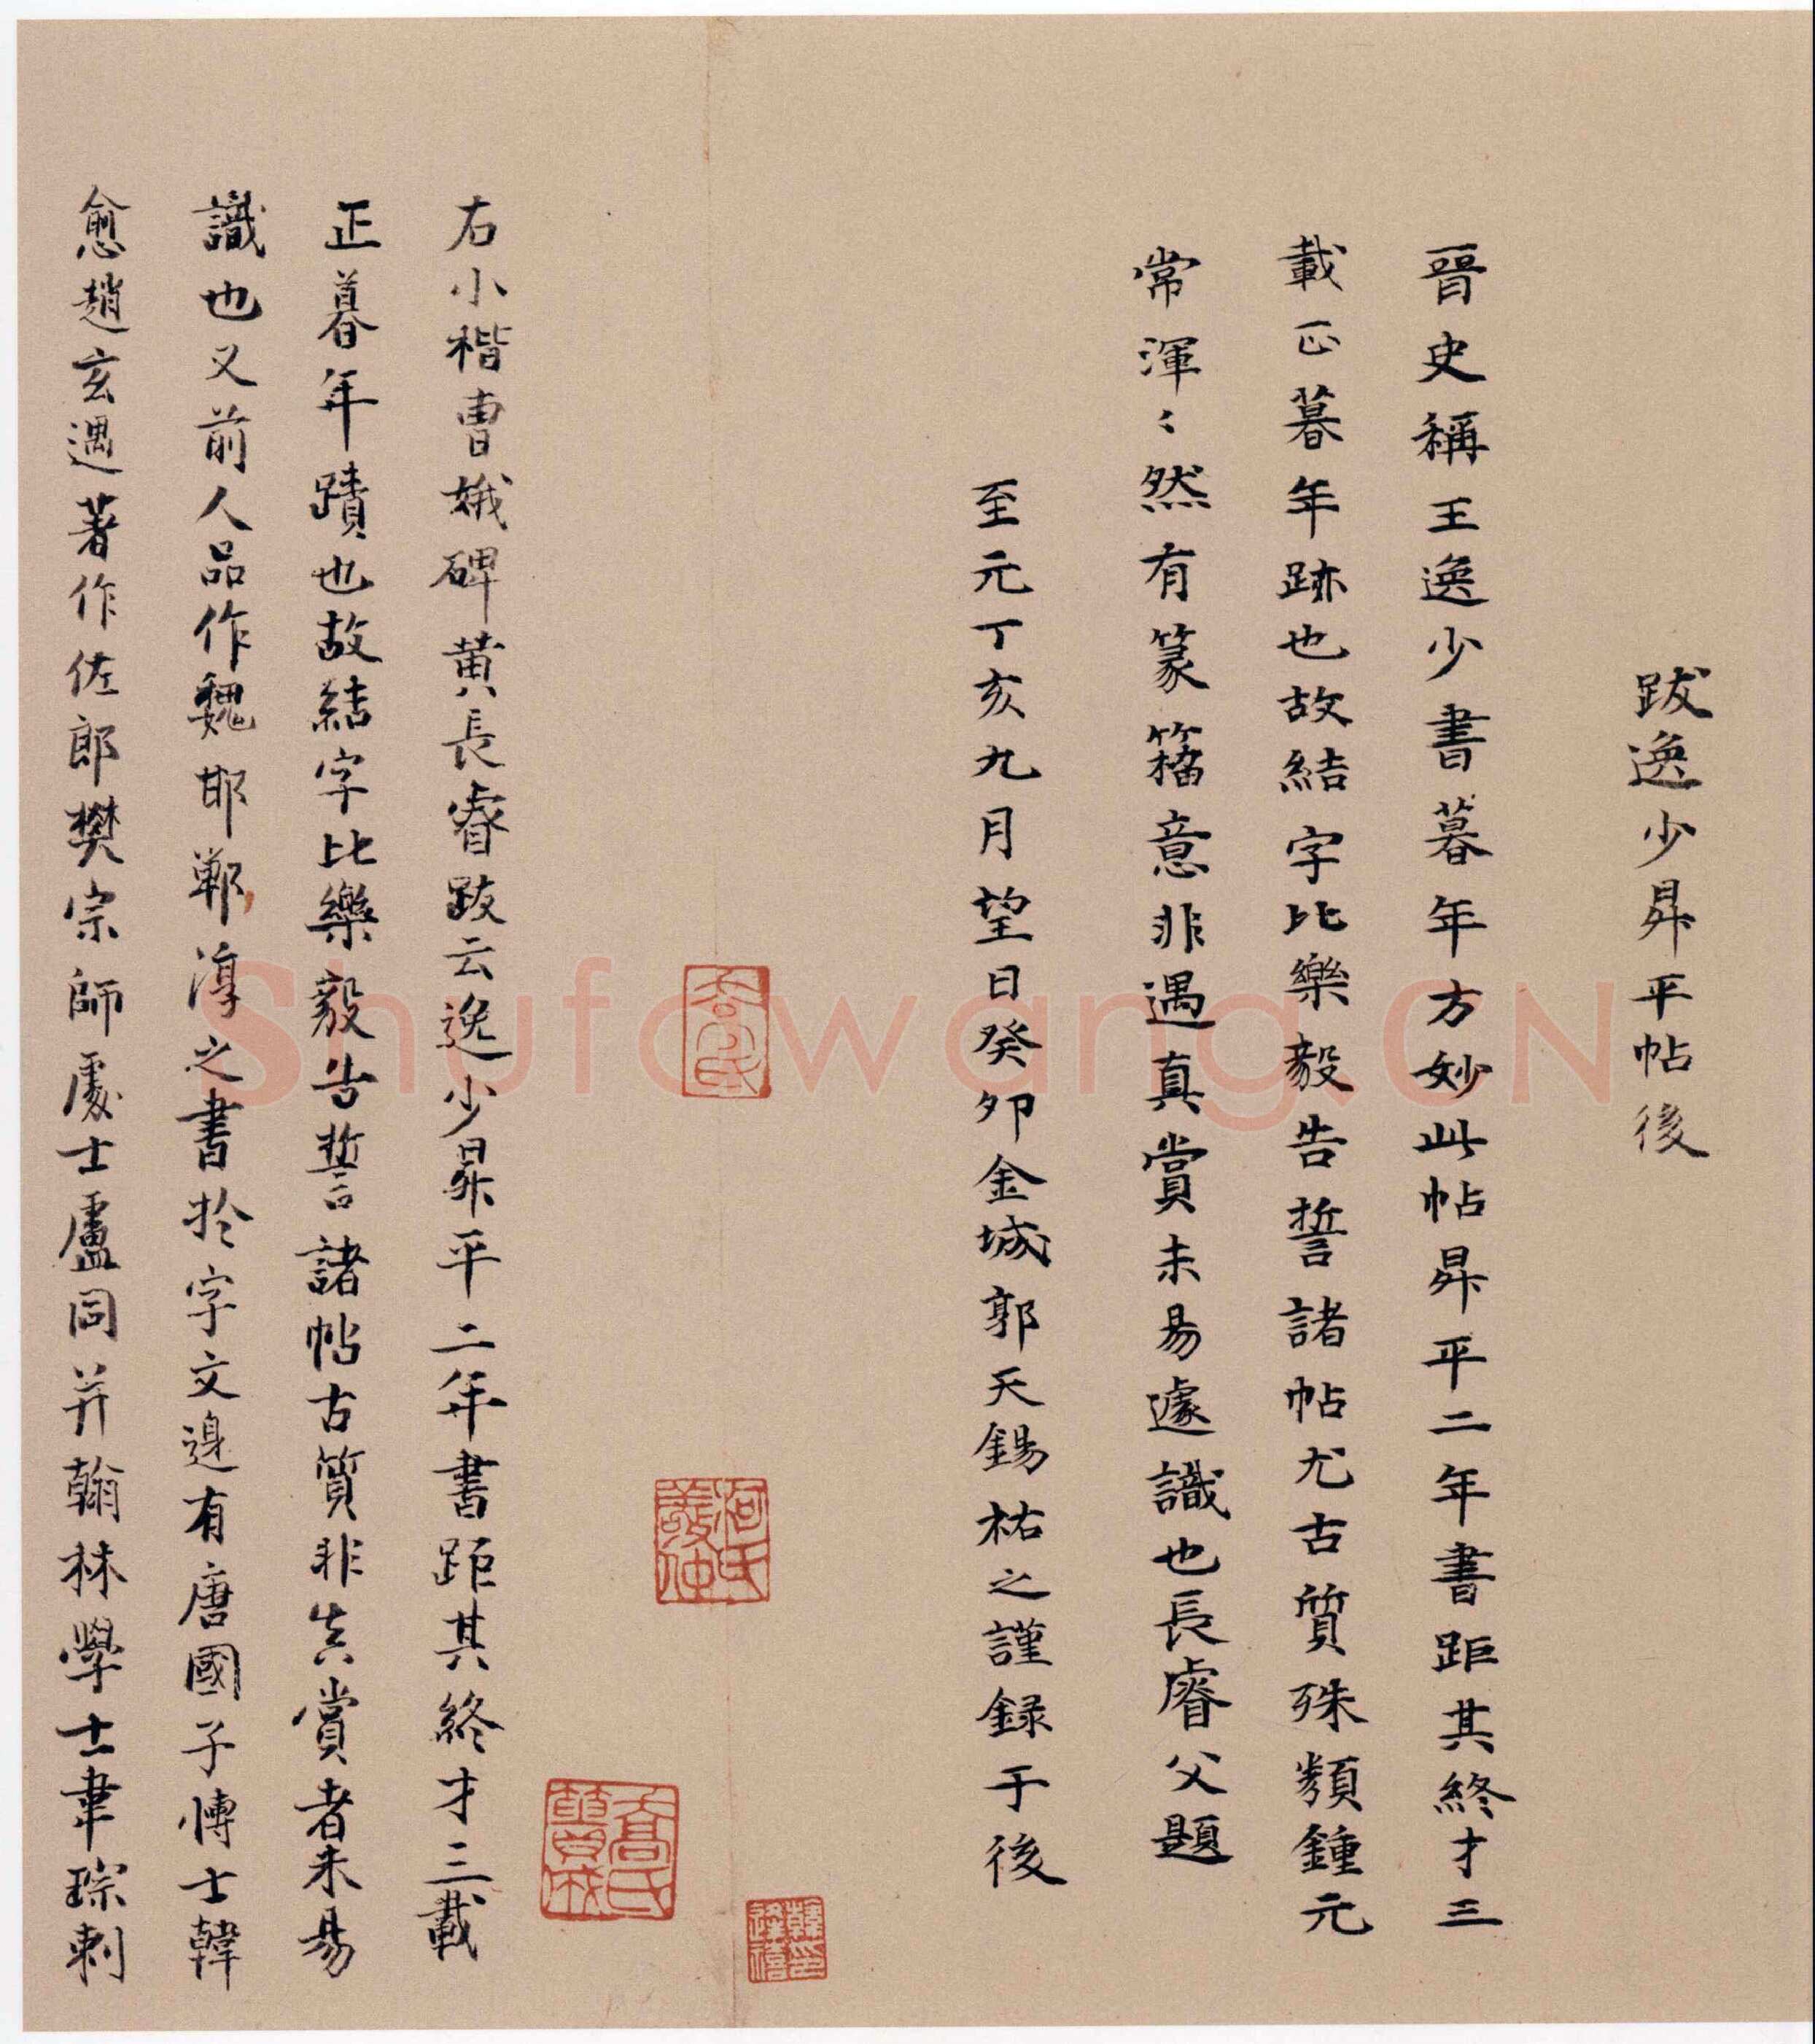 跋逸少昇平帖後
晉史稱王逸少書暮年方妙此帖昇平二年書距其終才三
載正暮年跡也故結字比樂毅告誓諸帖尤古質殊類鍾元
常渾〻然有篆籀意非遇真賞未易遽識也長睿父題
至元丁亥九月望日癸卯金城郭天錫祐之謹録于後
右小楷曹娥碑黄長睿跋云逸少昇平二年書距其終才三載
正暮年蹟也故結字比樂毅告誓諸帖古質非真賞者未易
識也又前人品作魏邯鄲淳之書於字文邊有唐國子博士韓
愈趙玄遇著作佐郎樊宗師處士盧同并翰林學士韋琮刺
喬氏
高氏
Shufawang.CN